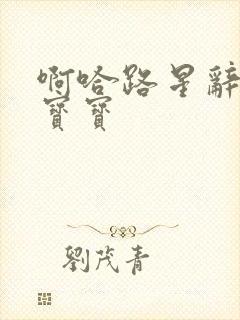 啊哈路星辭
寶寶
劉茂青